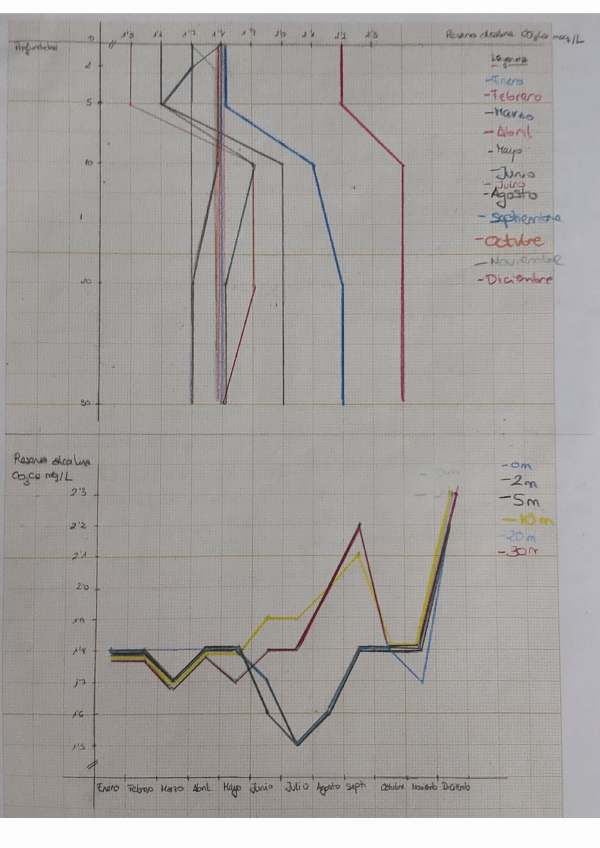 0 1'5 1'6 1'7 1'8 1'9 2'0 2'1 2'2 2'3 Reserva alcalina CO3Ca meq/L
Profundidad
2
5
10
20
30
Leyenda
- Enero
- Febrero
- Marzo
- Abril
- Mayo
- Junio
- Julio
- Agosto
- Septiembre
- Octubre
- Noviembre
- Diciembre
Reserva alcalina
CO3Ca mg/L
- 0m
- 0m
- 2m
- 5m
- 10m
- 20m
- 30m
2'3
2'2
2'1
2'0
1'9
1'8
1'7
1'6
1'5
Enero Febrero Marzo Abril Mayo Junio Julio Agosto Septi Octubre Noviemb Diciemb